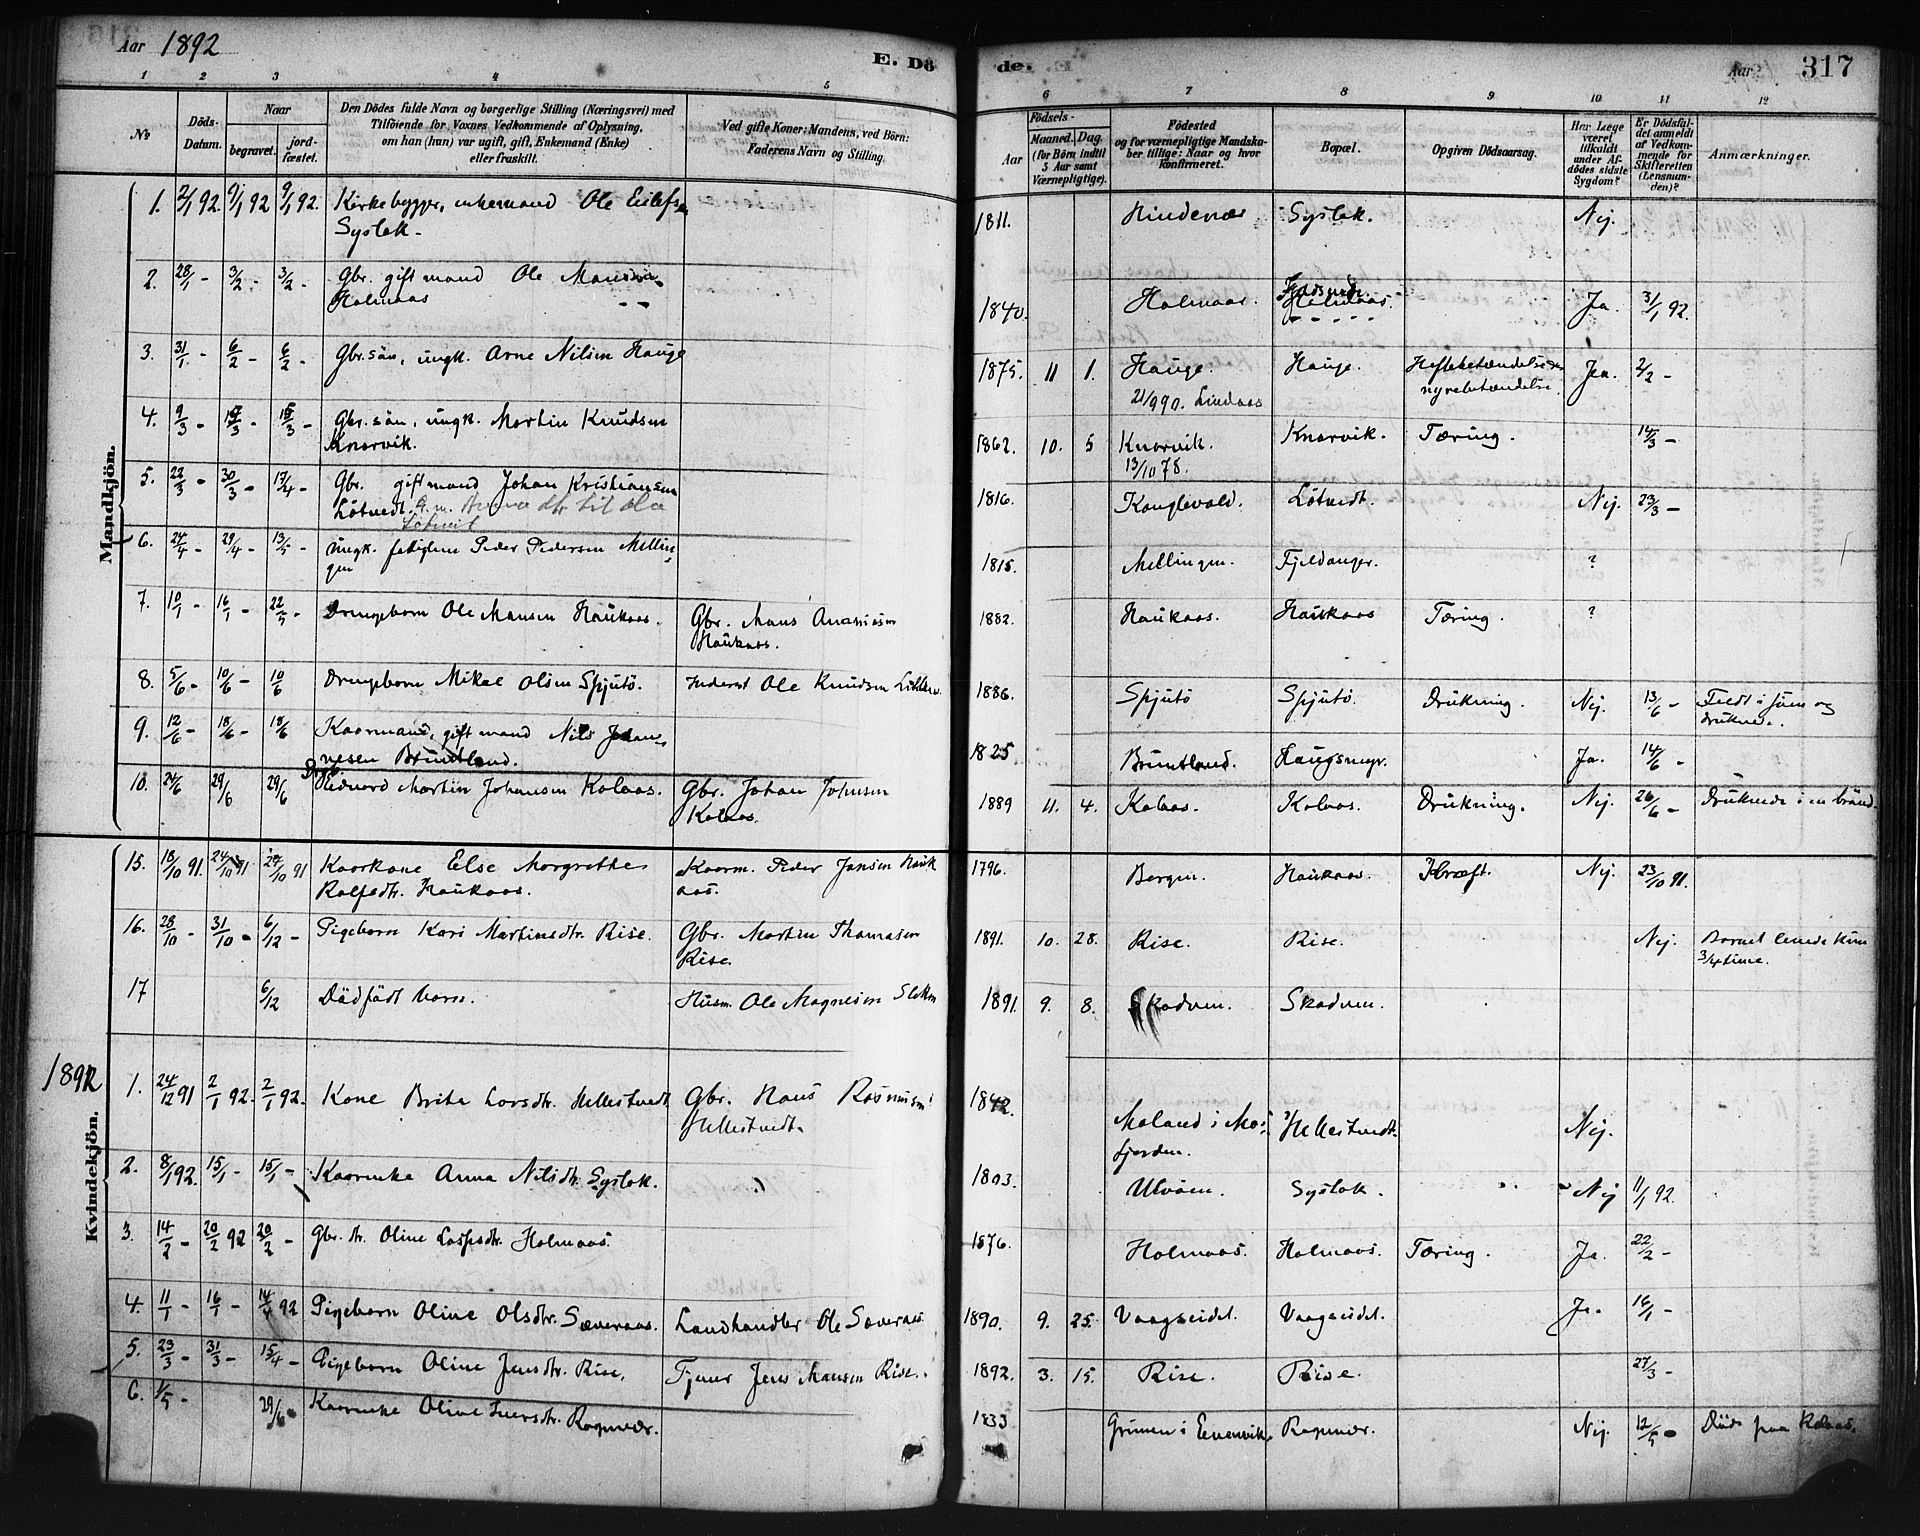 Aar 1892
E. Dö
de.
Aar
317
1 2 3 4 5 6 7 8 9 10 11 12
No
Döds-
Datum.
Naar
begravet.
jord-
fæstet.
Den Dödes fulde Navn og borgerlige Stilling (Næringsvei) med
Tilföiende for Voxnes Vedkommende af Oplysning,
om han (hun) var ugift, gift, Enkemand (Enke)
eller fraskilt.
Ved gifte Koner: Mandens, ved Börn:
Faderens Navn og Stilling.
Födsels-
Aar
Maaned.
Dag
(for Börn indtil
5 Aar samt
Værnepligtige).
Födested
og for værnepligtige Mandska-
ber tillige: Naar og hvor
konfirmeret.
Bopæl.
Opgiven Dödsaarsag.
Har Læge
været
tilkaldt
under Af-
dödes sidste
Sygdom?
Er Dödsfal-
det anmeldt
af Vedkom-
mende for
Skifteretten
(Lensman-
den)?
Anmærkninger.
Mandkjön.
1. 2/1 92. 9/1 92 9/1 92. Kirkebygger, enkemand Ole Eilefsen 1811. Hindenær Syslak. Nej.
Syslak.
2. 28/1 - 3/2 - 3/2 - Gbr. gift mand Ole Mansen 1840. Holmaas. Holmaas. Ja. 31/1 92.
Holmaas
3. 31/1 - 6/2 - 6/2 - Gbr. sön, ungk. Arne Nilsen Hauge 1875. 11 1. Hauge. Hauge. Hoftebetændelse Jea. 2/2 -
21/9 90. Lindaas nyrebetændelse
4. 9/3 - 3 - 3 - Gbr. sön, ungk. Martin Knudsen 1862. 10. 5 Knarvik. Knarvik. Tæring. 14/3 -
Knarvik. 13/10 78.
5. 22/3 - 30/3 - 17/4 - Gbr. gift mand Johan Kristiansen 1816. Kanglevald. Lötvedt. Nej. 23/3 -
Lötvedt. G. m. Anna dtr. til Ola
Lötveit
6. 24/4 - 29/4 - 13/5 - Ungk. fattiglem Peder Pedersen Mellin- 1815. Mellingen. Fjeldanger. ?
gen
7. 10/1 - 16/1 - 22/5 - Drengebarn Ole Mansen Haukaas. Gbr. Mans Ananiasen 1882. Haukaas. Haukaas Tæring. ?
Haukaas.
8. 5/6 - 10/6 - 10/6 Drengebarn Mikal Olsen Spjutö. Inderst Ole Knudsen 1886. Spjutö Spjutö. Drukning. Nej. 13/6 - Faldt i sjöen og
druknede.
9. 12/6 - 18/6 - 18/6 Kaarmand, gift mand Nils Johan- 1825 Bruntland. Haugsmyr. Ja. 14/6 -
nesen Bruntland.
10. 24/6 29/6 29/6 Hidvard Martin Johansen Kolaas. Gbr. Johan Johnsen 1889 11. 4. Kolaas. Kolaas. Drukning. Nej. 26/6 - Druknede i en brönd.
Kolaas.
Kvindekjön.
15. 18/10 91. 24/10 91 24/10 91 Kaarkone Else Margrethe Kaarm. Peder Jansen Hauk 1796. Bergen. Haukaas. Kræft. Nej. 23/10 91.
Rolfsdtr. Haukaas. aas.
16. 28/10 - 31/10 - 6/12 - Pigebarn Kari Martinsdtr. Rise. Gbr. Martin Thomasen 1891. 10. 28. Rise. Rise. Nej. Barnet levede kun
Rise. 3/4 time.
17 6/12 Dödfödt barn. Husm. Ole Magnesen 1891. 9. 8. Skodven. Skodven.
1892
1. 24/12 91 2/1 92. 2/1 92. Kone Brita Larsdtr. Hellestvedt Gbr. Hans Rasmusen 1842. Moland i Mos- Hellestvedt. Nej.
Hellestvedt. fjorden.
2. 8/1 92. 15/1 - 15/1 - Kaarenke Anna Nilsdtr. Syslak. 1803. Ulvöen. Syslak. Nej 11/1 92.
3. 14/2 - 20/2 92 20/2 - Gbr. dtr. Oline Holmaas. 1876. Holmaas. Holmaas. Tæring. Ja. 22/2 -
4. 11/1 - 16/1 - 14/4 92 Pigebarn Oline Olsdtr. Sæveraas. Landhandler Ole Sæveraas 1890. 9. 25. Vaagseidet. Vaagseidet. Ja. 16/1 -
5. 23/3 - 31/3 - 15/4 - Pigebarn Oline Jensdtr. Rise. Tjener Jens Mansen Rise. 1892. 3. 15. Rise. Rise. 27/3 -
6. 1/5 - 29/6 Kaarenke Oline Iversdtr. Ragnvær. 1833 Grimen i Evenvik. Ragnvær. Nej. 12/5 - Död paa Kolaas.